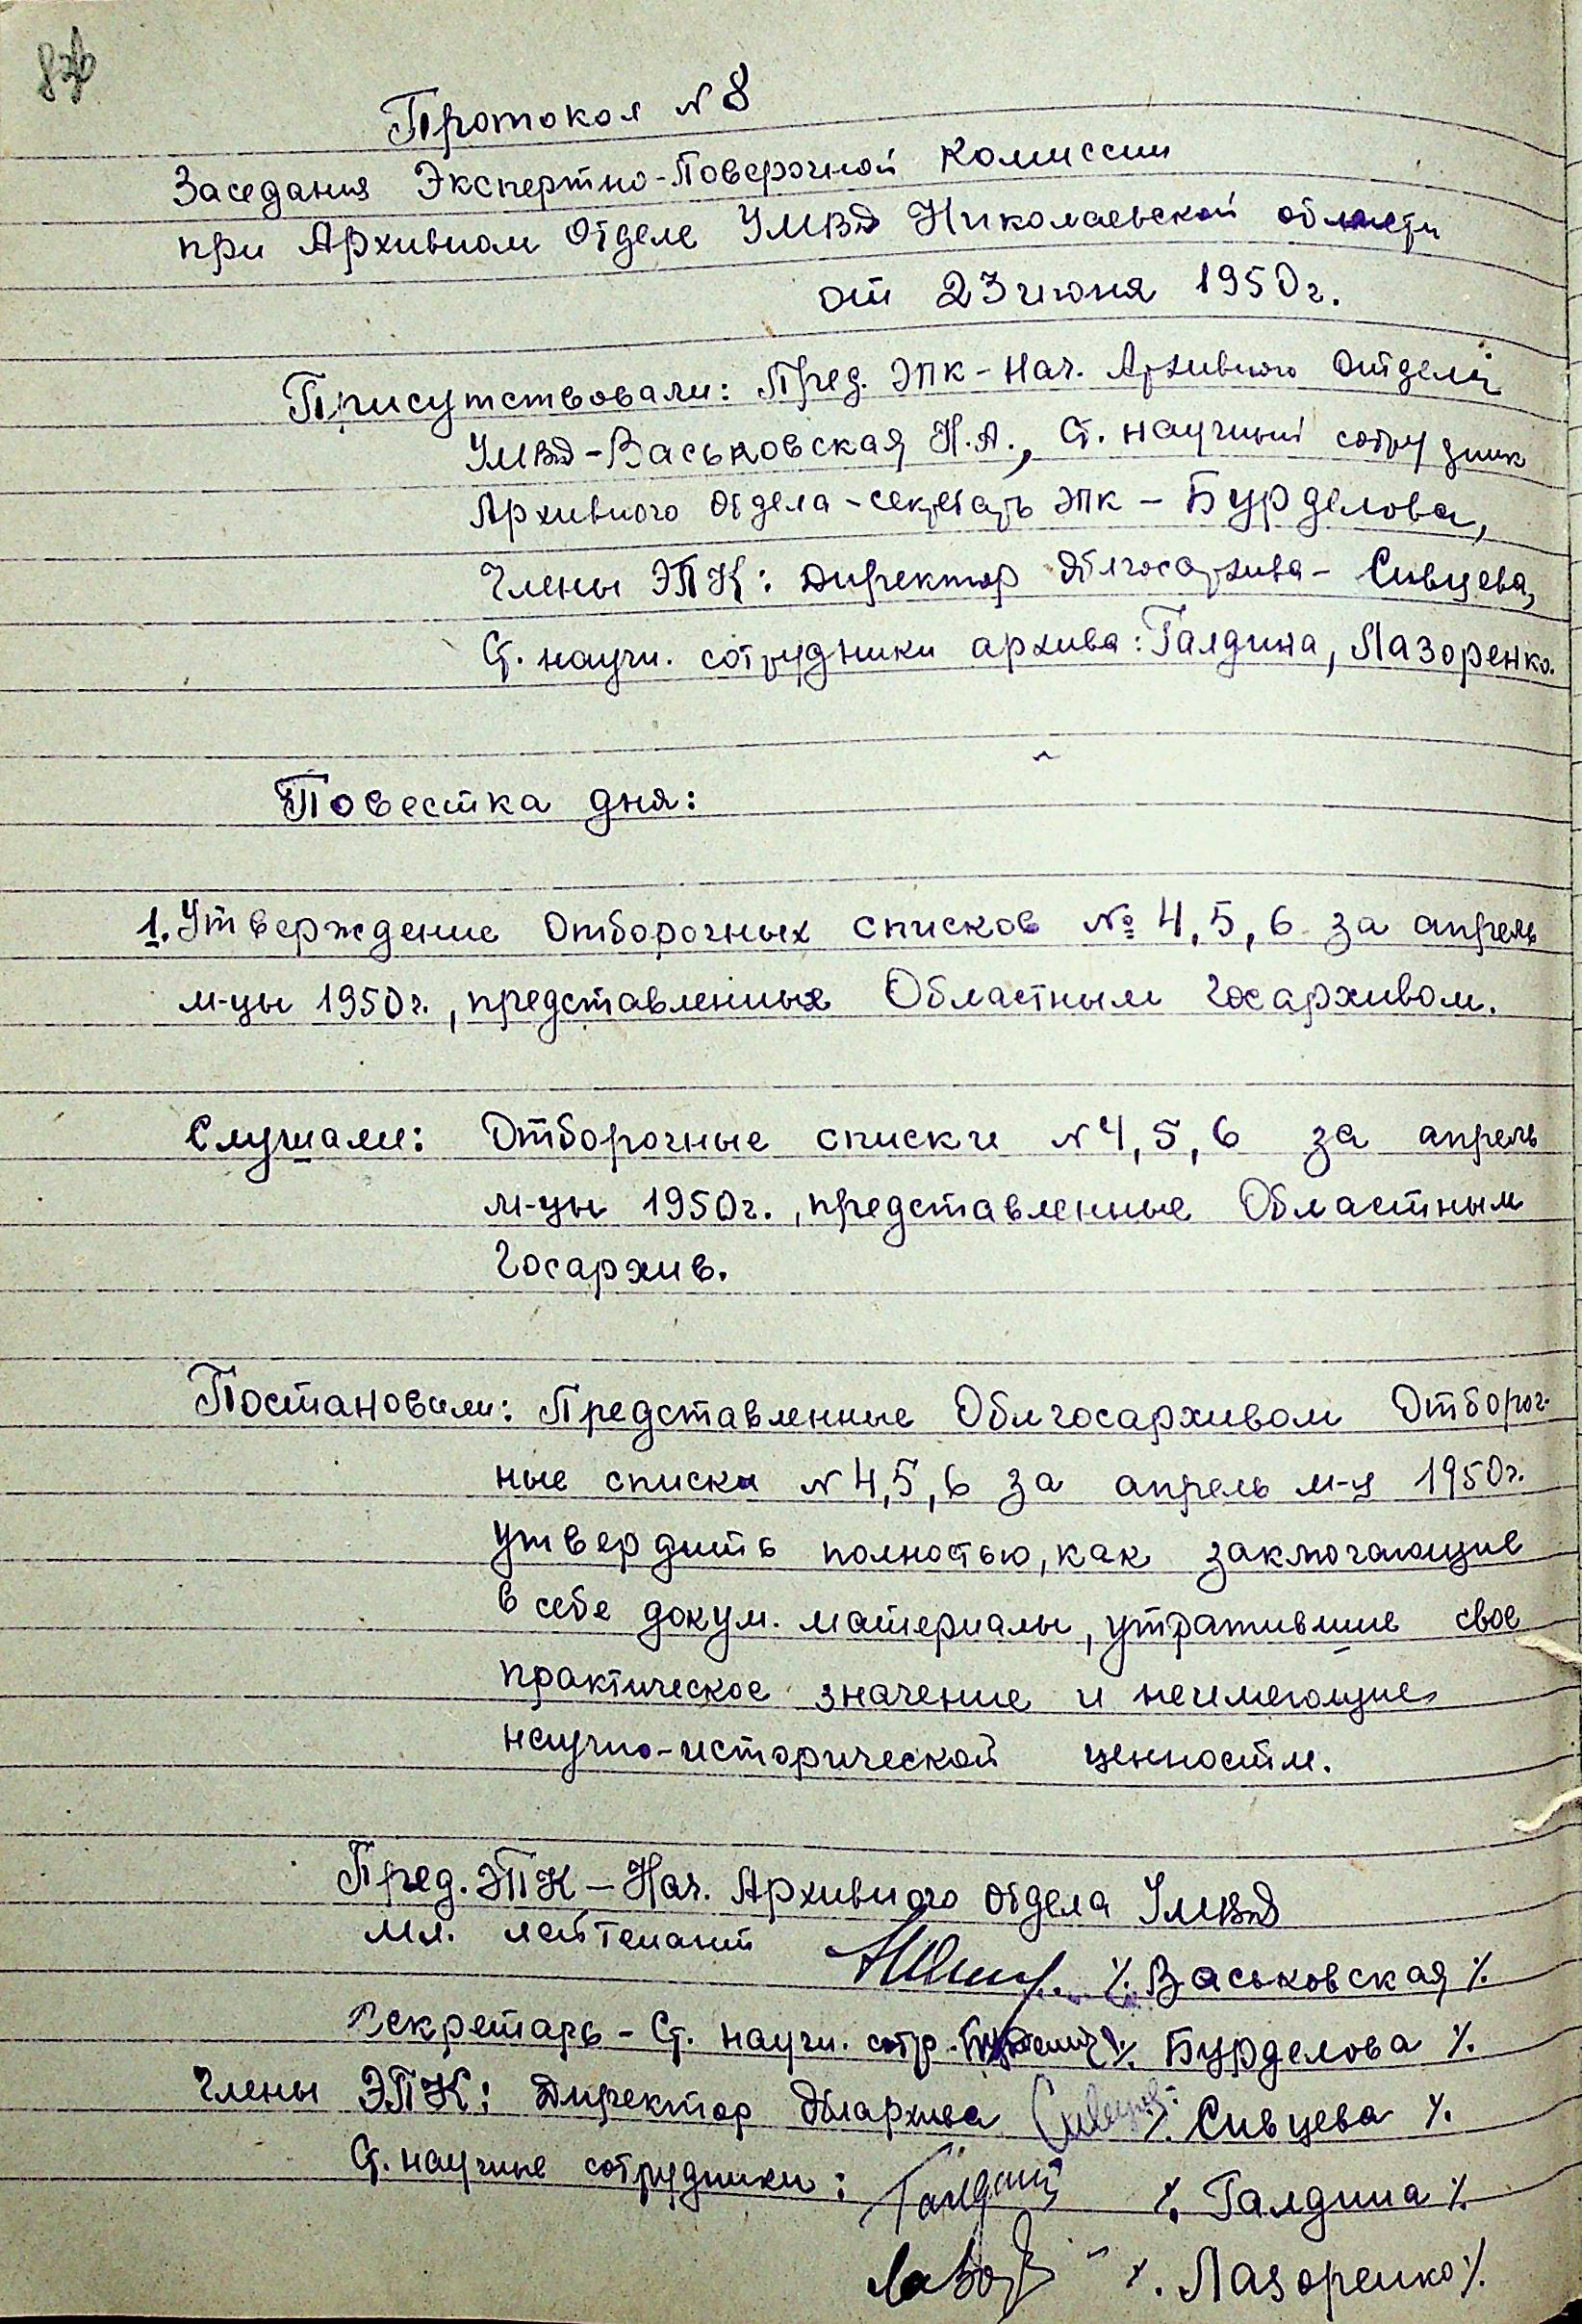 Протокол N 8
Заседания Экспертно-Поверочной Комиссии
при Архивном Отделе УМВД Николаевской области
от 23 июня 1950г.
Присутствовали: Пред. ЭПК - Нач. Архивного Отдела
УМВД - Васьковская Н.А., Ст. научный сотрудник
Архивного Отдела - секретарь ЭПК - Бурделова,
Члены ЭПК: Директор Облгосархива - Сивцева,
Ст. научн. сотрудники архива: Галдина, Лазоренко.
Повестка дня:
1. Утверждение Отборочных списков № 4, 5, 6 за апрель
м-цы 1950г., представленных Областным Госархивом.
Слушали: Отборочные списки N 4, 5, 6 за апрель
м-цы 1950г., представленные Областным
Госархив.
Постановили: Представленные Облгосархивом Отбороч-
ные списки N 4, 5, 6 за апрель м-ц 1950г.
утвердить полностью, как заключающие
в себе докум. материалы, утратившие свое
практическое значение и неимеющие
научно-исторической ценности.
Пред. ЭПК - Нач. Архивного отдела УМВД
мл. лейтенант /. Васьковская /.
Секретарь - Ст. научн. сотр. /. Бурделова /.
Члены ЭПК: Директор Облархива /. Сивцева /.
Ст. научные сотрудники: /. Галдина /.
/. Лазоренко /.